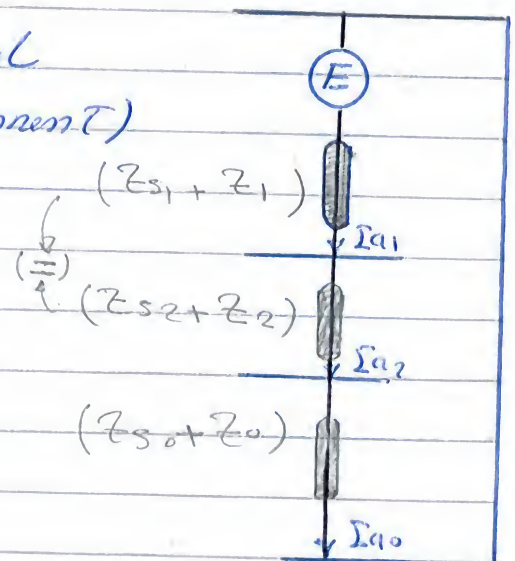 E
(Zs₁ + Z₁)
Ia₁
(=)
(Zs₂ + Z₂)
Ia₂
(Zs₀ + Z₀)
Ia₀